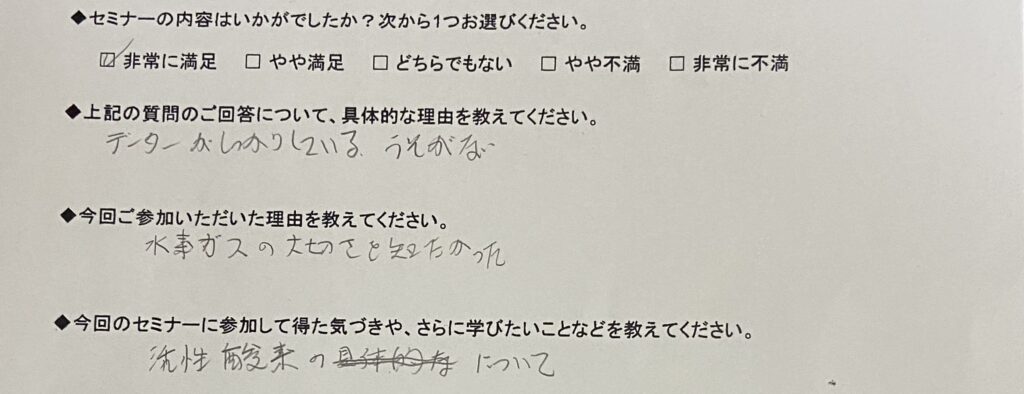 ◆セミナーの内容はいかがでしたか？次から1つお選びください。
☑ 非常に満足 □ やや満足 □ どちらでもない □ やや不満 □ 非常に不満
◆上記の質問のご回答について、具体的な理由を教えてください。
データーがしっかりしている、うそがない
◆今回ご参加いただいた理由を教えてください。
水素ガスの大切さを知りたかった
◆今回のセミナーに参加して得た気づきや、さらに学びたいことなどを教えてください。
活性酸素の具体的な について